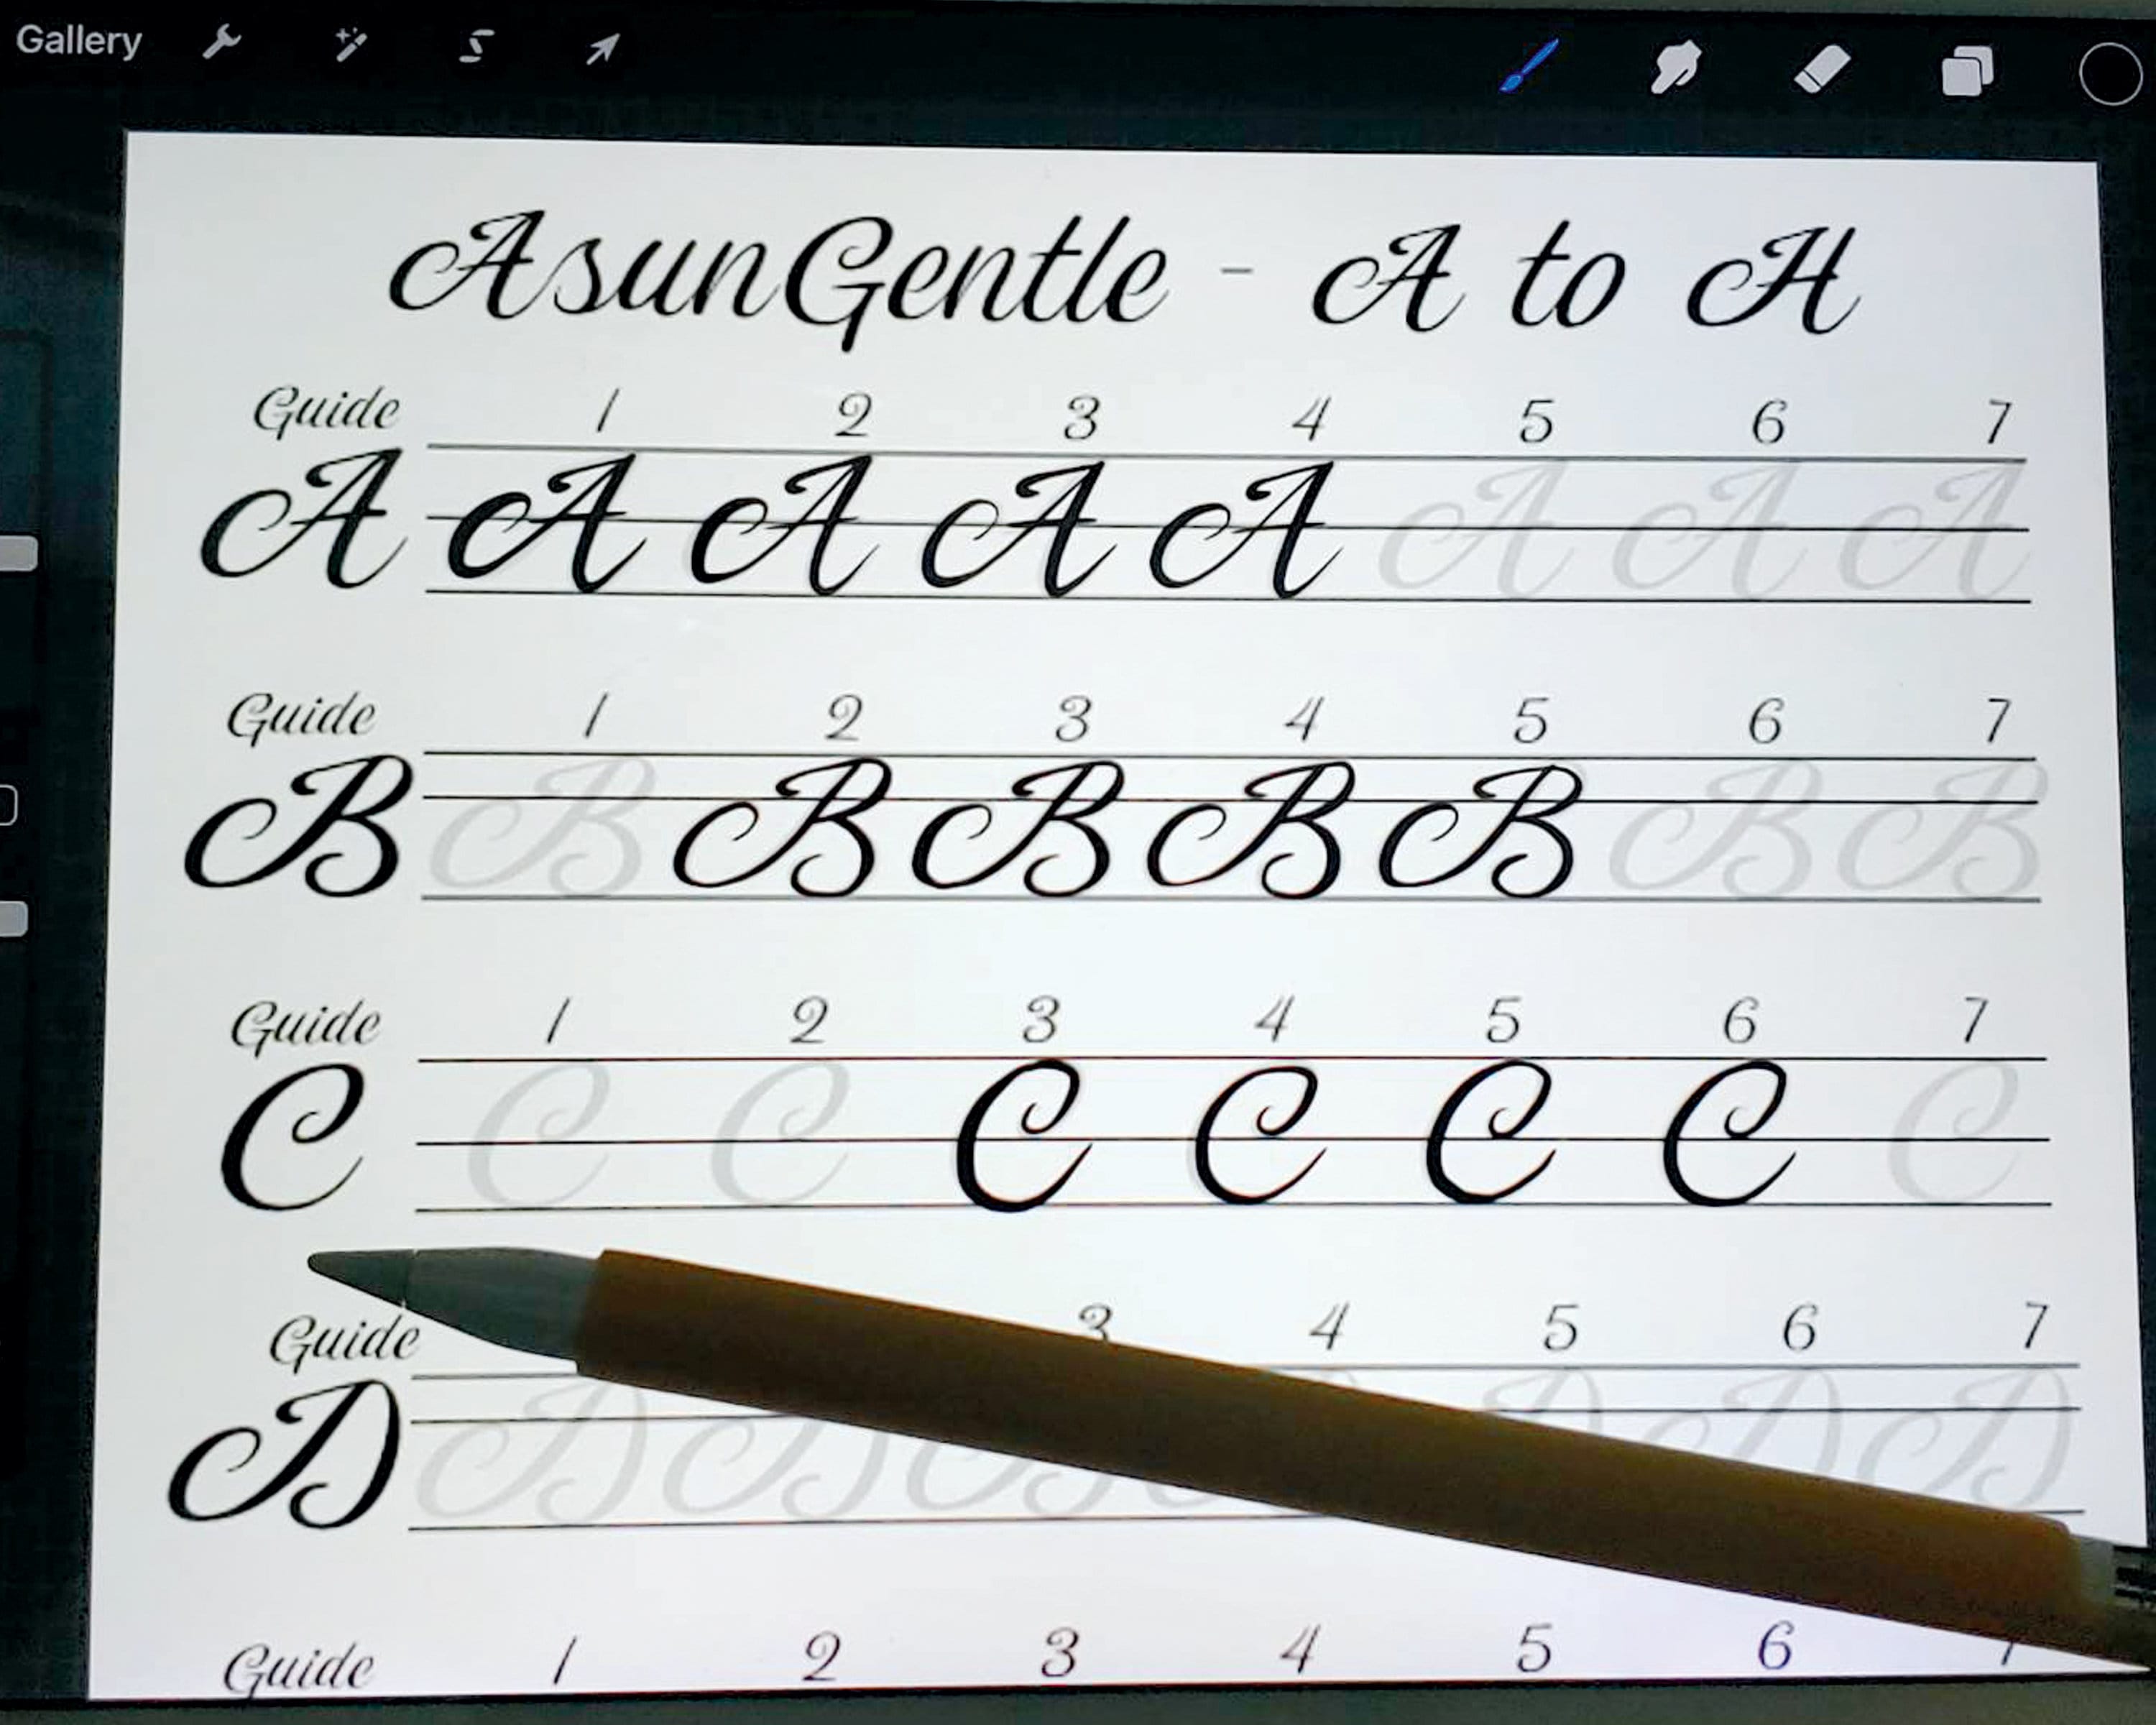 Gallery
AsunGentle - A to H
Guide 1 2 3 4 5 6 7
A A A A A A A A
Guide 1 2 3 4 5 6 7
B B B B B B B B
Guide 1 2 3 4 5 6 7
C C C C C C C C
Guide 3 4 5 6 7
D D D D D D D
Guide 1 2 3 4 5 6 7